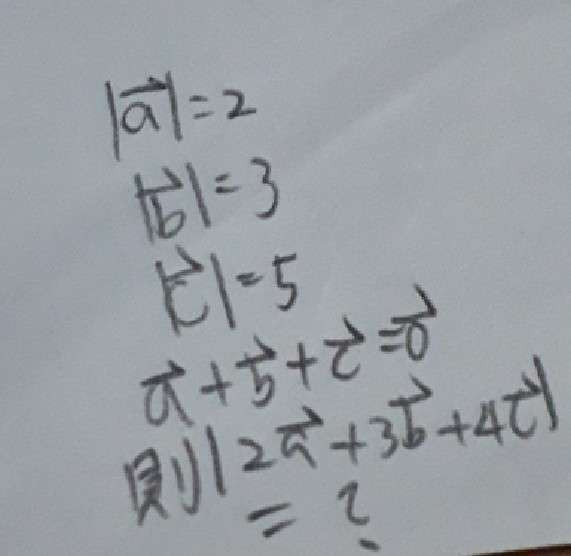 |a⃗|=2
|b⃗|=3
|c⃗|=5
a⃗+b⃗+c⃗=0⃗
則|2a⃗+3b⃗+4c⃗|
=?